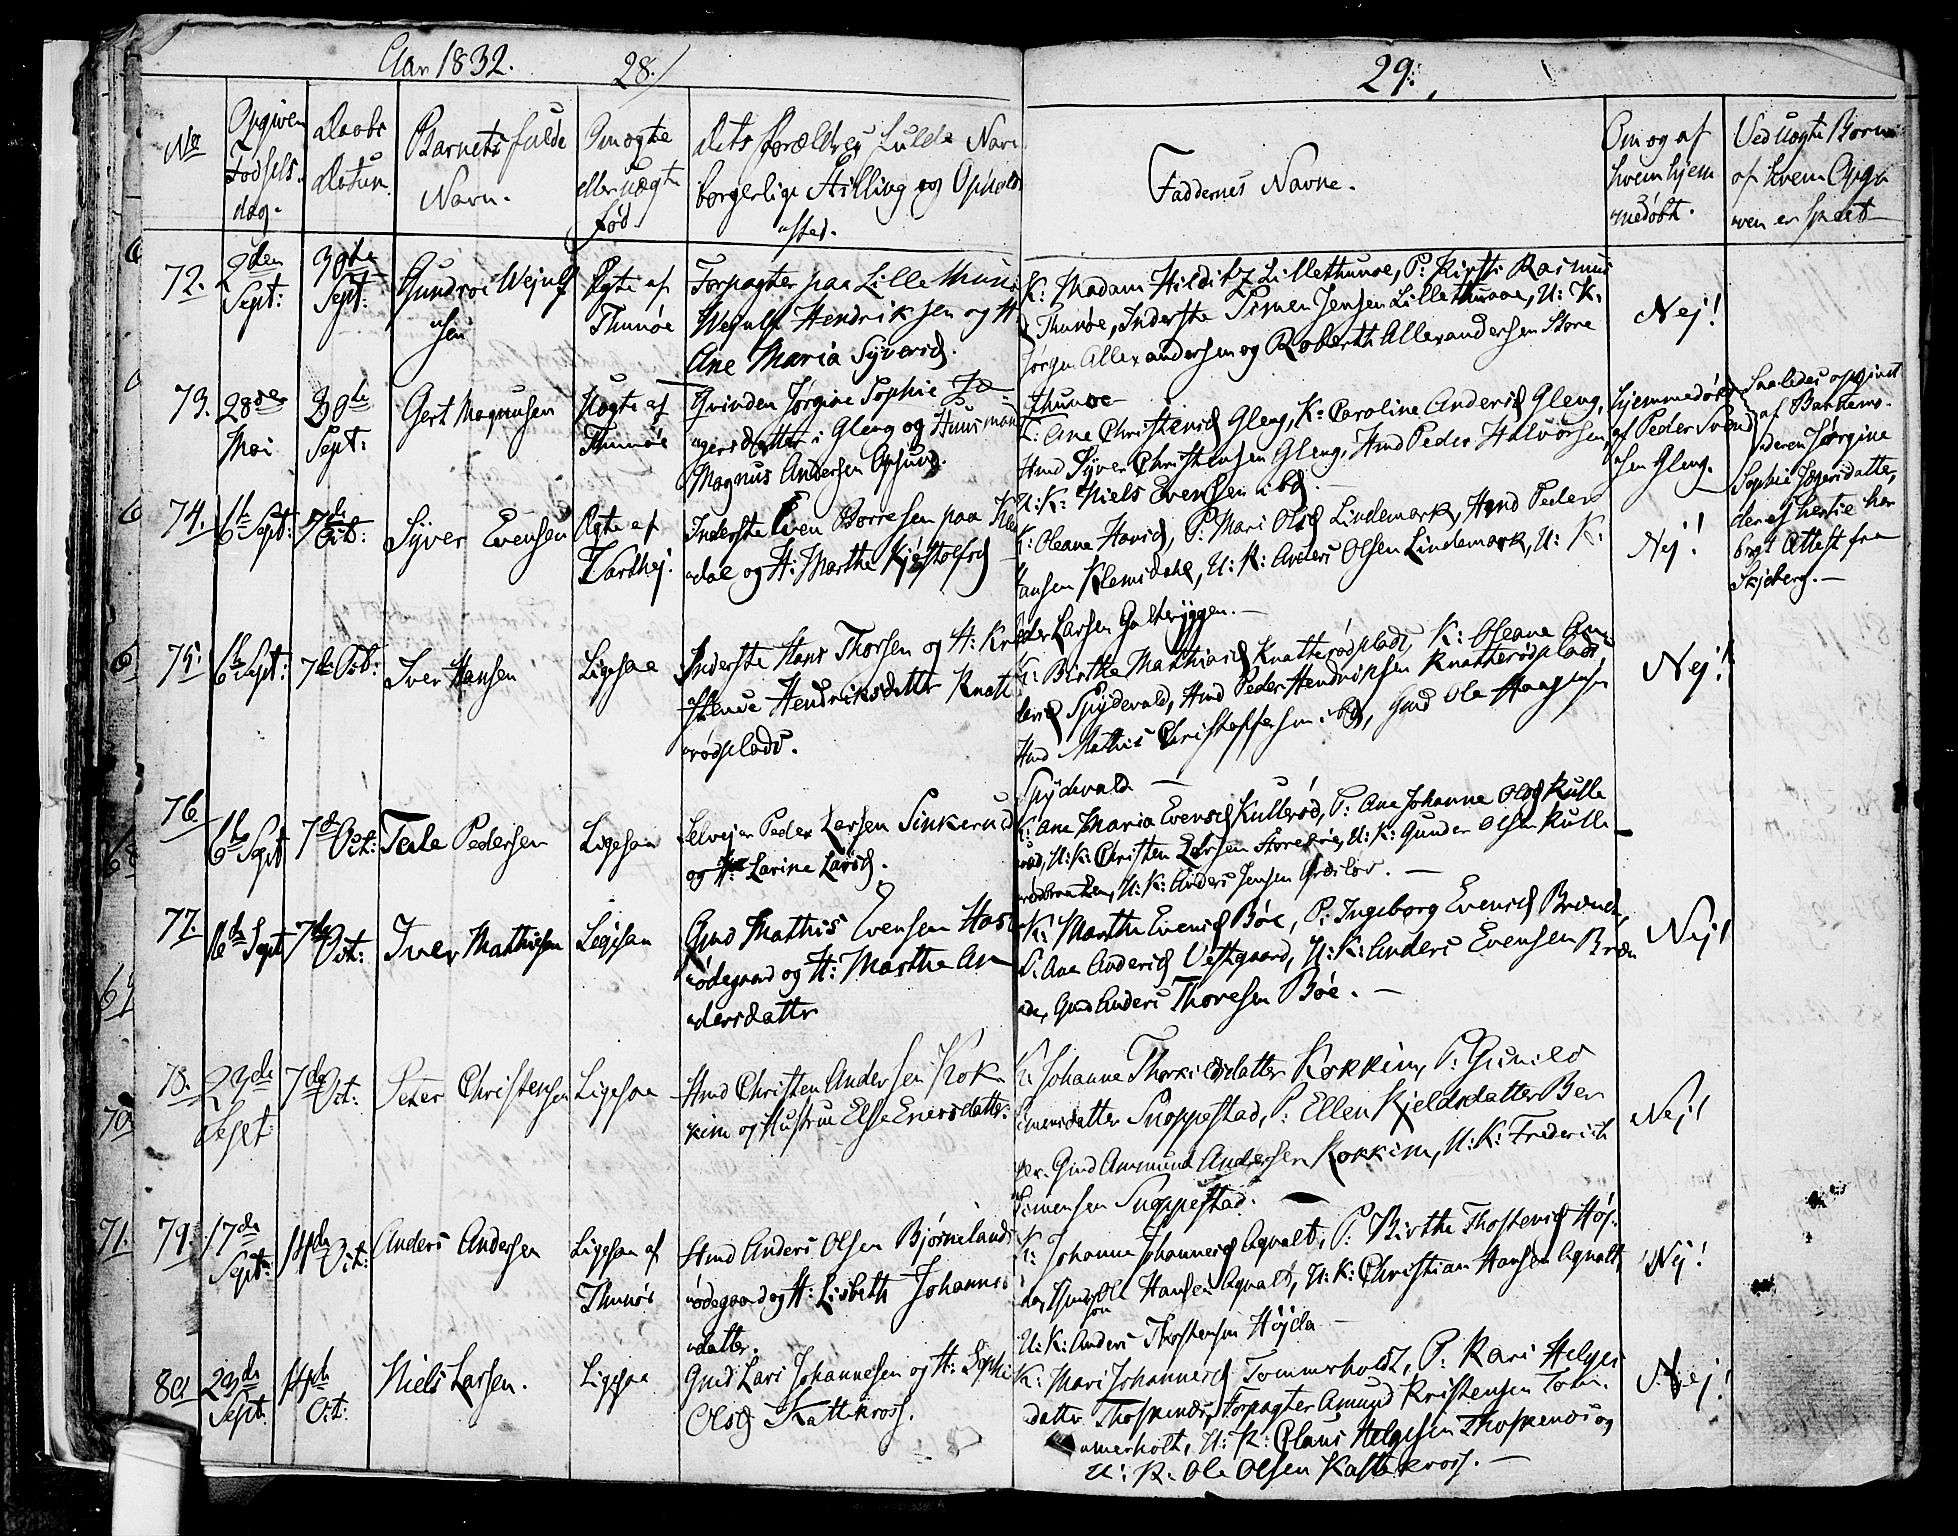 Aar 1832.
28./
No
Opgiven
Fødsels-
dag.
Daabs
Datum.
Barnets fulde
Navn.
Om ægte
eller uægte
fød.
dets Forældres fulde Navn
borgerlige Stilling og Opholds
sted.
72.
2den
Sept:
30te
Sept:
Ægte af
Thunøe
Forpagter paa Lille Thun
Wejulf Hendriksen og H
Ane Maria Syversd.
73.
28de
Mai
30te
Sept:
Gert Magnusen
Uægte af
Thunøe
Qvinden Jørgine Sophie
i Gleng og Huusmand
Magnus Andersen
74.
6te Sept:
7de Oct:
Syver Evensen
Ægte af
Inderste Even Børresen paa Kle
dal og H: Marthe Kjøstolfsd
75.
6te Sept:
7de Oct:
Iver Hansen
Ligesaa
Inderste Hans Thorsen og H: Kri
Hendriksdatter Knatte
rødplads.
76.
6te Sept
7de Oct:
Terle Pedersen
Ligesaa
Selvejer Peder Larsen Sinkerud
og H: Larine Larsd.
77.
16de Sept
7de Oct:
Iver Mathisen
Ligesaa
Gmd Mathis Evensen
ødegaard og H: Marthe An
dersdatter
78.
23de
Sept
7de Oct:
Peter Christensen
Ligesaa
Hmd Christen Andersen Kok
kim og Hustrue Else Enersdatter.
71.
79.
17de
Sept:
14de Oct:
Anders Andersen
Ligesaa af
Thunøe
Hmd Anders Olsen Bjørnelands
ødegaard og H: Lisbeth Johannes
datter.
80
23de
Sept.
14de
Oct:
Niels Larsen.
Ligesaa
Gmd Lars Johannesen og H: Sophie
Olsd Kattekross.
29.
Faddernes Navne.
Om og af
hvem hjem
medøbt.
Ved uægte Børn
af hvem Opgi
ven er skeet
K: Madam Hilditz Lillethunøe, P: Kirsti Rasmus
d Thunøe, Inderste Simen Jensen Lillethunøe, U: K:
Jørgen Allexandersen og Roberth Allexandersen Store
Thunøe
Nej!
K: Ane Christensd Gleng, K: Caroline Andersd Gleng,
Hmd Syver Christensen Gleng, Hmd Peder Halvorsen,
U: K: Niels Evensen ibd.
hjemmedøbt
af Peder Svend
sen Gleng.
Saaledes opgivet
af Barnemo-
deren Jørgine
Sophie
deraf hertil har
bragt Attest fra
Skjeberg. –
K: Oleane Hansd, P: Mari Olsd Lindemark, Hmd Peder
Hansen Klemsdahl, U: K: Anders Olsen Lindemark, U: K:
Peder Larsen Galteryggen. –
Nej!
K: Birthe Mathiasd Knatterødplads, K: Oleane An
dersd Spydevald, Hmd Peder Hendriksen Knatterødplads
Hmd Mathis Christoffersen ibd, Gmd Ole Haagensen
Spydevald –
Nej!
K: Ane Maria Evensd Kullerød, P: Ane Johanne Olsd Kulle
rød, U: K: Christen Larsen U: K: Gunder Olsen Kulle
rødbraaten, U: K: Anders Jensen –
–
K: Marthe Evensd Bøe, P: Ingeborg Evensd Brænde,
P: Ane Andersd Vestgaard, U: K: Anders Evensen Bræn
de, Gmd Anders Thoresen Bøe. –
Nej!
K: Johanne Thorkildsdatter Kokkim, P: Gunild
Simensdatter Snoppestad, P: Ellen Kjeldsdatter Ber
Gmd Ammund Andersen Kokkim, U: K: Frederich
Simensen Snoppestad. –
Nej!
K: Johanne Johannesd Agnalt, P: Birthe Thostensd Høj-
da, Hmd Ole Hansen Agnalt, U: K: Christian Hansen Agnalt,
U: K: Anders Thostensen Højda –
Nej!
K: Mari Johannesd Tommerholdt, P: Kari Helges
datter Thoskenæs, Forpagter Amund Kristensen Tom-
merholt, U: K: Claus Helgesen Thoskenæs og
U: K: Ole Olsen Kattekross. –
Nej!